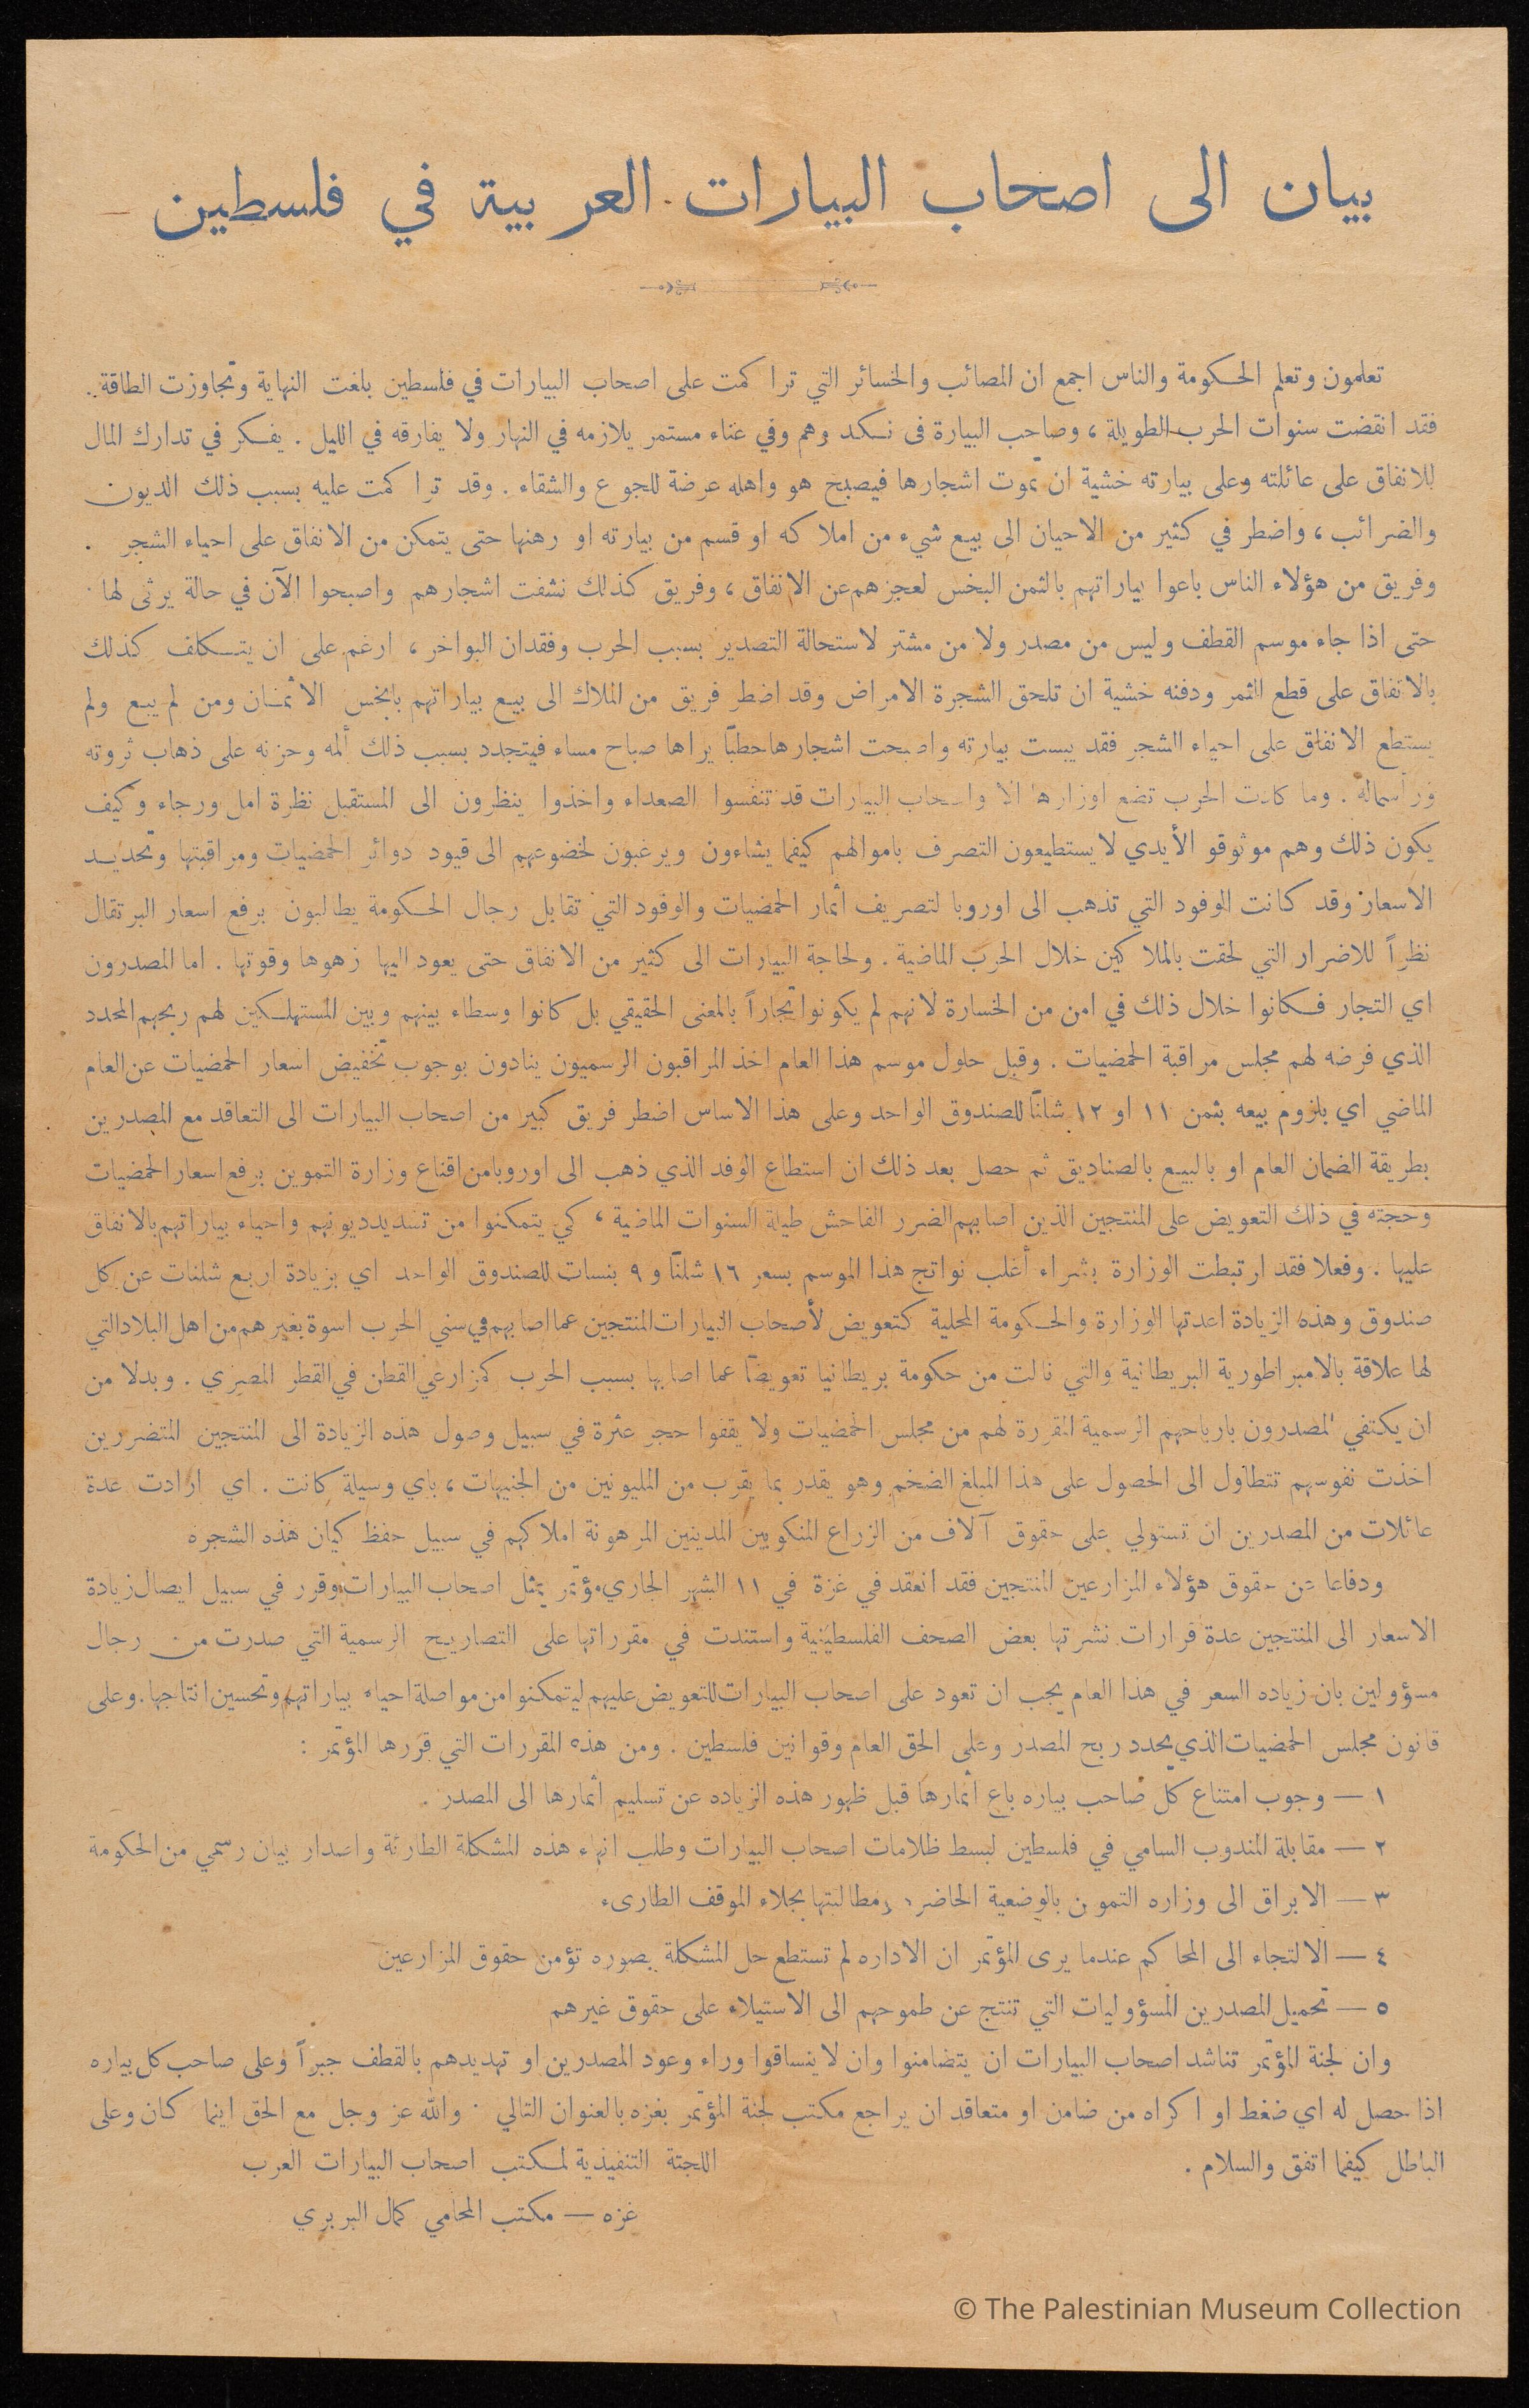 بيان الى اصحاب البيارات العربية في فلسطين
تعلمون وتعلم الحكومة والناس اجمع ان المصائب والخسائر التي تراكمت على اصحاب البيارات في فلسطين بلغت النهاية وتجاوزت الطاقة .
فقد انقضت سنوات الحرب الطويلة ، وصاحب البيارة في نكد وهم وفي عناء مستمر يلازمه في النهار ولا يفارقه في الليل . يفكر في تدارك المال
للانفاق على عائلته وعلى بيارته خشية ان تموت اشجارها فيصبح هو واهله عرضة للجوع والشقاء . وقد تراكمت عليه بسبب ذلك الديون
والضرائب ، واضطر في كثير من الاحيان الى بيع شيء من املاكه او قسم من بيارته او رهنها حتى يتمكن من الانفاق على احياء الشجر .
وفريق من هؤلاء الناس باعوا بياراتهم بالثمن البخس لعجزهم عن الانفاق ، وفريق كذلك نشفت اشجارهم واصبحوا الآن في حالة يرثى لها .
حتى اذا جاء موسم القطف وليس من مصدر ولا من مشتر لاستحالة التصدير بسبب الحرب وفقدان البواخر ، ارغم على ان يتكلف كذلك
بالانفاق على قطع الثمر ودفنه خشية ان تلحق الشجرة الامراض وقد اضطر فريق من الملاك الى بيع بياراتهم بابخس الاثمان ومن لم يبع ولم
يستطع الانفاق على احياء الشجر فقد يبست بيارته واصبحت اشجارها حطبًا يراها صباح مساء فيتجدد بسبب ذلك ألمه وحزنه على ذهاب ثروته
ورأسماله . وما كادت الحرب تضع اوزارها الا واصحاب البيارات قد تنفسوا الصعداء واخذوا ينظرون الى المستقبل نظرة امل ورجاء وكيف
يكون ذلك وهم موثوقو الأيدي لا يستطيعون التصرف باموالهم كيفما يشاءون ويرغبون لخضوعهم الى قيود دوائر الحمضيات ومراقبتها وتحديد
الاسعار وقد كانت الوفود التي تذهب الى اوروبا لتصريف اثمار الحمضيات والوفود التي تقابل رجال الحكومة يطالبون برفع اسعار البرتقال
نظراً للاضرار التي لحقت بالملاكين خلال الحرب الماضية . ولحاجة البيارات الى كثير من الانفاق حتى يعود اليها زهوها وقوتها . اما المصدرون
اي التجار فكانوا خلال ذلك في امن من الخسارة لانهم لم يكونوا تجاراً بالمعنى الحقيقي بل كانوا وسطاء بينهم وبين المستهلكين لهم ربحهم المحدد
الذي فرضه لهم مجلس مراقبة الحمضيات . وقبل حلول موسم هذا العام اخذ المراقبون الرسميون ينادون بوجوب تخفيض اسعار الحمضيات عن العام
الماضي اي بلزوم بيعه بثمن ١١ او ١٢ شلنًا للصندوق الواحد وعلى هذا الاساس اضطر فريق كبير من اصحاب البيارات الى التعاقد مع المصدرين
بطريقة الضمان العام او بالبيع بالصناديق ثم حصل بعد ذلك ان استطاع الوفد الذي ذهب الى اوروبا من اقناع وزارة التموين برفع اسعار الحمضيات
وحجته في ذلك التعويض على المنتجين الذين اصابهم الضرر الفاحش طيلة السنوات الماضية ، كي يتمكنوا من تسديد ديونهم واحياء بياراتهم بالانفاق
عليها . وفعلا فقد ارتبطت الوزارة بشراء أغلب نواتج هذا الموسم بسعر ١٦ شلنًا و ٩ بنسات للصندوق الواحد اي بزيادة اربع شلنات عن كل
صندوق وهذه الزيادة اعدتها الوزارة والحكومة المحلية كتعويض لأصحاب البيارات المنتجين عما اصابهم في سني الحرب اسوة بغيرهم من اهل البلاد التي
لها علاقة بالامبراطورية البريطانية والتي نالت من حكومة بريطانيا تعويضًا عما اصابها بسبب الحرب كمزارعي القطن في القطر المصري . وبدلا من
ان يكتفي المصدرون بارباحهم الرسمية المقررة لهم من مجلس الحمضيات ولا يقفوا حجر عثرة في سبيل وصول هذه الزيادة الى المنتجين المتضررين
اخذت نفوسهم تتطاول الى الحصول على هذا المبلغ الضخم وهو يقدر بما يقرب من المليونين من الجنيهات ، باي وسيلة كانت . اي ارادت عدة
عائلات من المصدرين ان تستولي على حقوق آلاف من الزراع المنكوبين المدينين المرهونة املاكهم في سبيل حفظ كيان هذه الشجره
ودفاعا عن حقوق هؤلاء المزارعين المنتجين فقد انعقد في غزة في ١١ الشهر الجاري مؤتمر يمثل اصحاب البيارات وقرر في سبيل ايصال زيادة
الاسعار الى المنتجين عدة قرارات نشرتها بعض الصحف الفلسطينية واستندت في مقرراتها على التصاريح الرسمية التي صدرت من رجال
مسؤولين بان زياده السعر في هذا العام يجب ان تعود على اصحاب البيارات للتعويض عليهم ليتمكنوا من مواصلة احياء بياراتهم وتحسين انتاجها . وعلى
قانون مجلس الحمضيات الذي يحدد ربح المصدر وعلى الحق العام وقوانين فلسطين . ومن هذه المقررات التي قررها المؤتمر :
١ — وجوب امتناع كل صاحب بياره باع اثمارها قبل ظهور هذه الزياده عن تسليم اثمارها الى المصدر .
٢ — مقابلة المندوب السامي في فلسطين لبسط ظلامات اصحاب البيارات وطلب انهاء هذه المشكلة الطارئة واصدار بيان رسمي من الحكومة
٣ — الابراق الى وزاره التموين بالوضعية الحاضره ومطالبتها بجلاء الموقف الطارىء
٤ — الالتجاء الى المحاكم عندما يرى المؤتمر ان الاداره لم تستطع حل المشكلة بصوره تؤمن حقوق المزارعين
٥ — تحميل المصدرين المسؤوليات التي تنتج عن طموحهم الى الاستيلاء على حقوق غيرهم
وان لجنة المؤتمر تناشد اصحاب البيارات ان يتضامنوا وان لا ينساقوا وراء وعود المصدرين او تهديدهم بالقطف جبراً وعلى صاحب كل بياره
اذا حصل له اي ضغط او اكراه من ضامن او متعاقد ان يراجع مكتب لجنة المؤتمر بغزه بالعنوان التالي . والله عز وجل مع الحق اينما كان وعلى
الباطل كيفما اتفق والسلام .
اللجنة التنفيذية لمكتب اصحاب البيارات العرب
غزه — مكتب المحامي كمال البربري
© The Palestinian Museum Collection